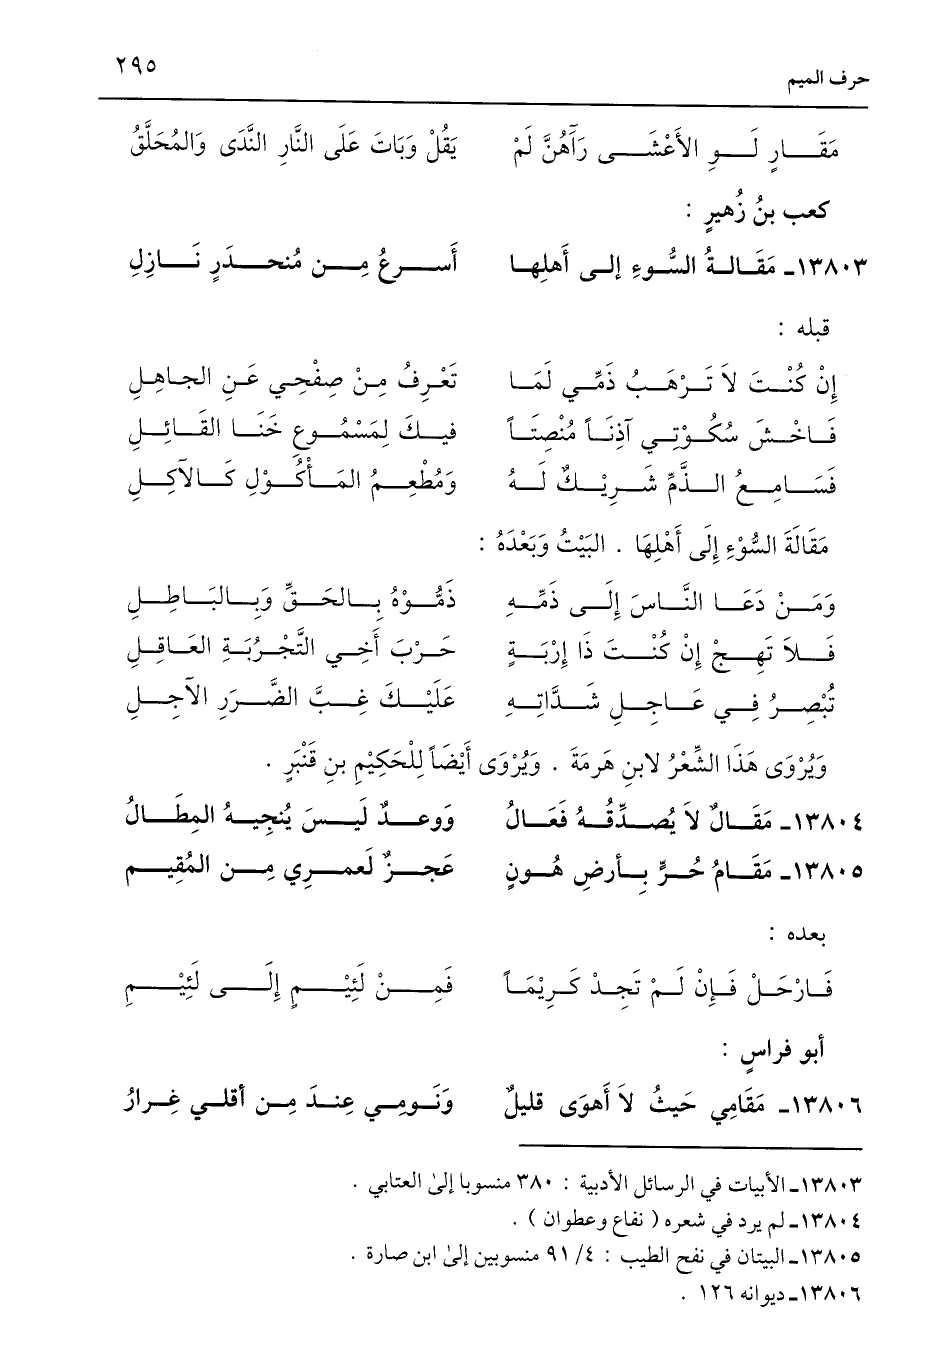 حرف الميم ٢٩٥
مَقَارٍ لَوِ الأَعْشَى رَآهُنَّ لَمْ يَقُلْ وَبَاتَ عَلَى النَّارِ النَّدَى وَالمُحَلَّقُ
كعب بنُ زُهيرٍ :
١٣٨٠٣ـ مَقَالةُ السُّوءِ إلى أَهلِها أَسرعُ مِن مُنحدَرٍ نَازِلِ
قبله :
إِنْ كُنْتَ لاَ تَرْهَبُ ذَمِّي لَمَا تَعْرِفُ مِنْ صِفْحِي عَنِ الجاهِلِ
فَاخْشَ سُكُوْتِي آذِنَاً مُنْصِتَاً فيكَ لِمَسْمُوعِ خَنَا القَائِلِ
فَسَامِعُ الذَّمِّ شَرِيْكٌ لَهُ وَمُطْعِمُ المَأْكُوْلِ كَالآكِلِ
مَقَالَةَ السُّوْءِ إِلَى أَهْلِهَا . البَيْتُ وَبَعْدَهُ :
وَمَنْ دَعَا النَّاسَ إِلَى ذَمِّهِ ذَمُّوْهُ بِالحَقِّ وَبِالبَاطِلِ
فَلاَ تَهِجْ إِنْ كُنْتَ ذَا إِرْبَةٍ حَرْبَ أَخِي التَّجْرُبَةِ العَاقِلِ
تُبْصِرُ فِي عَاجِلِ شَدَّاتِهِ عَلَيْكَ غِبَّ الضَّرَرِ الآجِلِ
وَيُرْوَى هَذَا الشِّعْرُ لابنِ هَرمَةَ . وَيُرْوَى أَيْضَاً لِلْحَكِيْمِ بنِ قَنْبَرٍ .
١٣٨٠٤ـ مَقَالٌ لاَ يُصدِّقُهُ فَعَالُ ووعدٌ لَيسَ يُنجِيهُ المِطَالُ
١٣٨٠٥ـ مَقَامُ حُرٍّ بِأرضِ هُونٍ عَجزٌ لَعمرِي مِن المُقِيمِ
بعده :
فَارْحَلْ فَإِنْ لَمْ تَجِدْ كَرِيْمَاً فَمِنْ لَئِيْمٍ إِلَى لَئِيْمِ
أبو فراسٍ :
١٣٨٠٦ـ مَقَامِي حَيثُ لاَ أَهوَى قليلٌ وَنَومِي عِندَ مِن أقلي غِرارُ
١٣٨٠٣ـ الأبيات في الرسائل الأدبية : ٣٨٠ منسوبا إلىٰ العتابي .
١٣٨٠٤ـ لم يرد في شعره ( نفاع وعطوان ) .
١٣٨٠٥ـ البيتان في نفح الطيب : ٤/ ٩١ منسوبين إلىٰ ابن صارة .
١٣٨٠٦ـ ديوانه ١٢٦ .